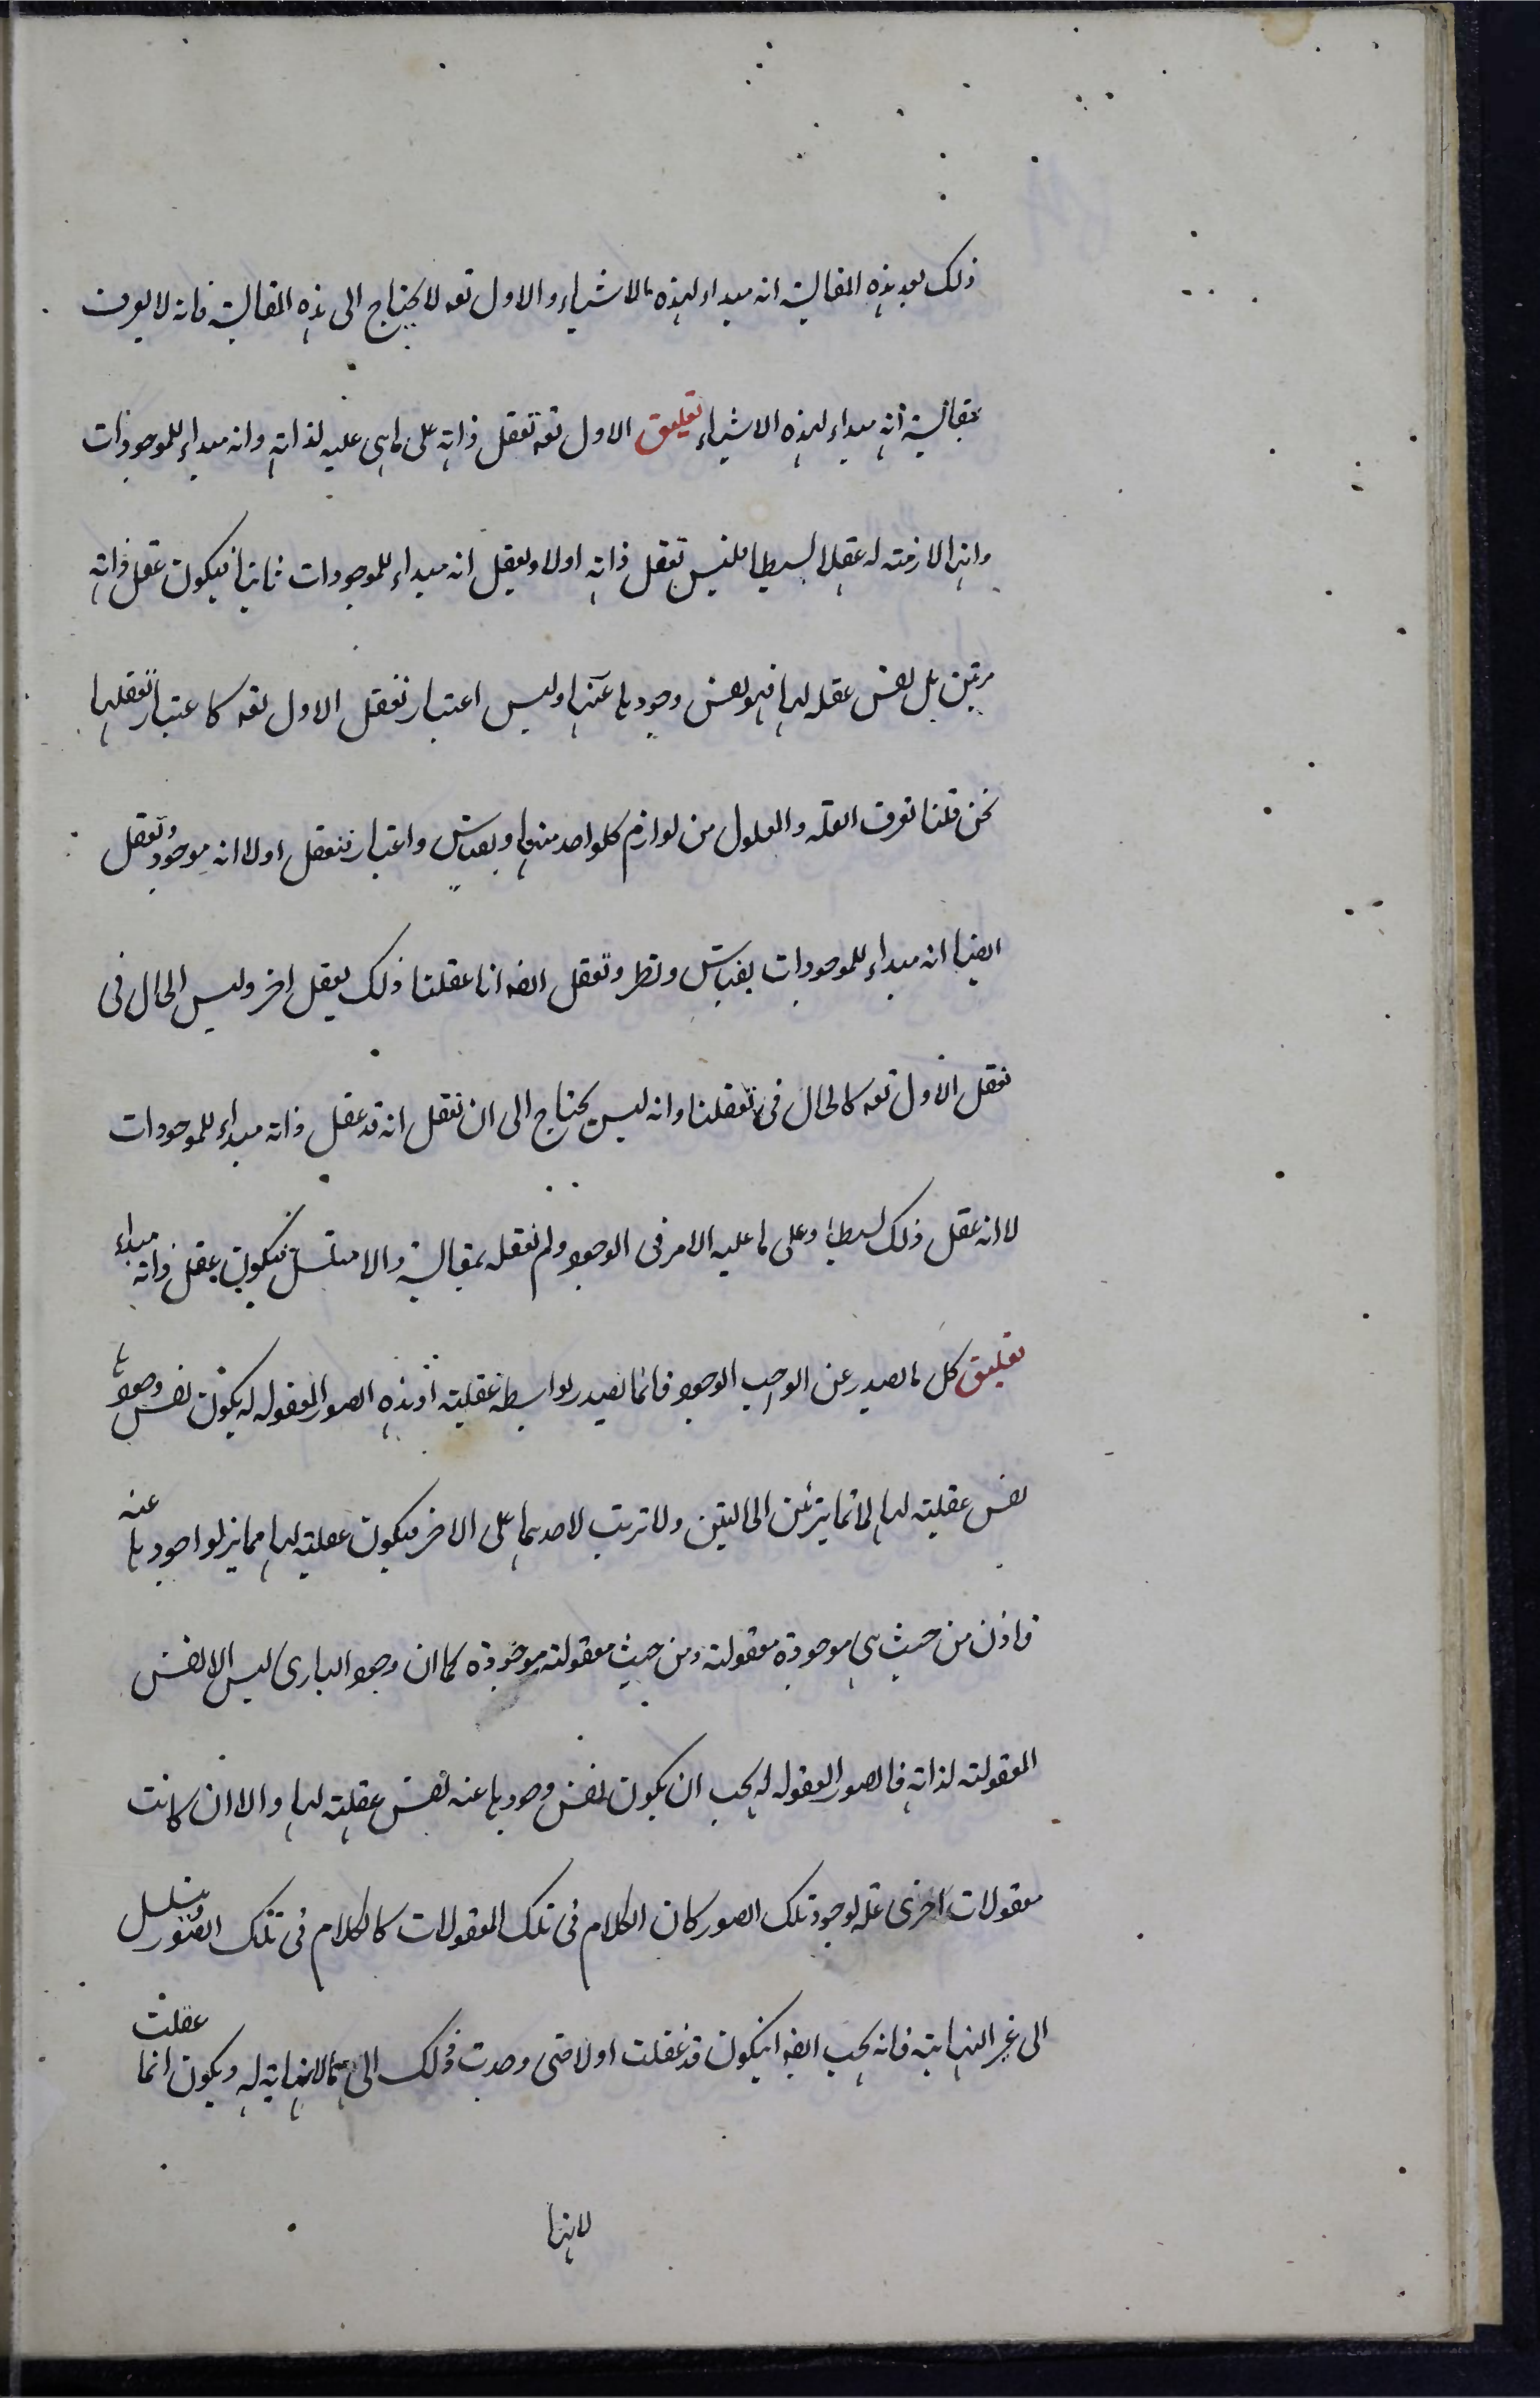 ذلك بعد هذه المقايسة انه مبداء لهذه الاشياء والاول تعه لا يحتاج الى هذه المقايسة فانه لا يعرف
بمقايسة انه مبداء لهذه الاشياء تعليق الاول تعه تعقل ذاته على ما هى عليه لذاته وانه مبداء للموجودات
وانها لازمته له عقلا بسيطا فليس تعقل ذاته اولا ويعقل انه مبداء للموجودات ثانيا فيكون عقل ذاته
مرتين بل نفس عقله لها فهو نفس وجودها عنها وليس اعتبار تعقل الاول تعه كاعتبار تعقلها
نحن قلنا نعرف العلة والمعلول من لوازم كلواحد منها وبقياس واعتبار فنعقل اولا انه موجود وتعقل
ايضا انه مبداء للموجودات بقياس ونظر وتعقل ايضه انا عقلنا ذلك بعقل اخر وليس الحال فى
تعقل الاول تعه كالحال فى تعقلنا وانه ليس يحتاج الى ان تعقل انه قد عقل ذاته مبداء للموجودات
لا انه عقل ذلك بسيطا وعلى ما عليه الامر فى الوجود ولم نعقله بمقايسة والا متسلسل فيكون بعقل ذاته مبداء
تعليق كل ما يصدر عن الواجب الوجود فانما يصدر بواسطة عقليته اذ هذه الصور المعقوله له يكون نفس وجودها
نفس عقليته لها لا تمايز بين الحالتين ولا ترتب لاحدهما على الاخر فيكون عقليته لها ممايز لوجودها عنه
فاذن من حيث هى موجودة معقولته ومن حيث معقولته موجودة كما ان وجود البارى ليس الا نفس
المعقولته لذاته فالصور المعقوله له يجب ان يكون نفس وجودها عنه نفس عقليته لها والا ان كانت
معقولات اخرى علة لوجود تلك الصور كان الكلام فى تلك المعقولات كالكلام فى تلك الصور ويتسلسل
الى غير النهايته فانه يجب ايضه ان يكون قد عقلت اولا حتى وجدت وذلك الى مالانهاية له ويكون انما عقلت
لانها